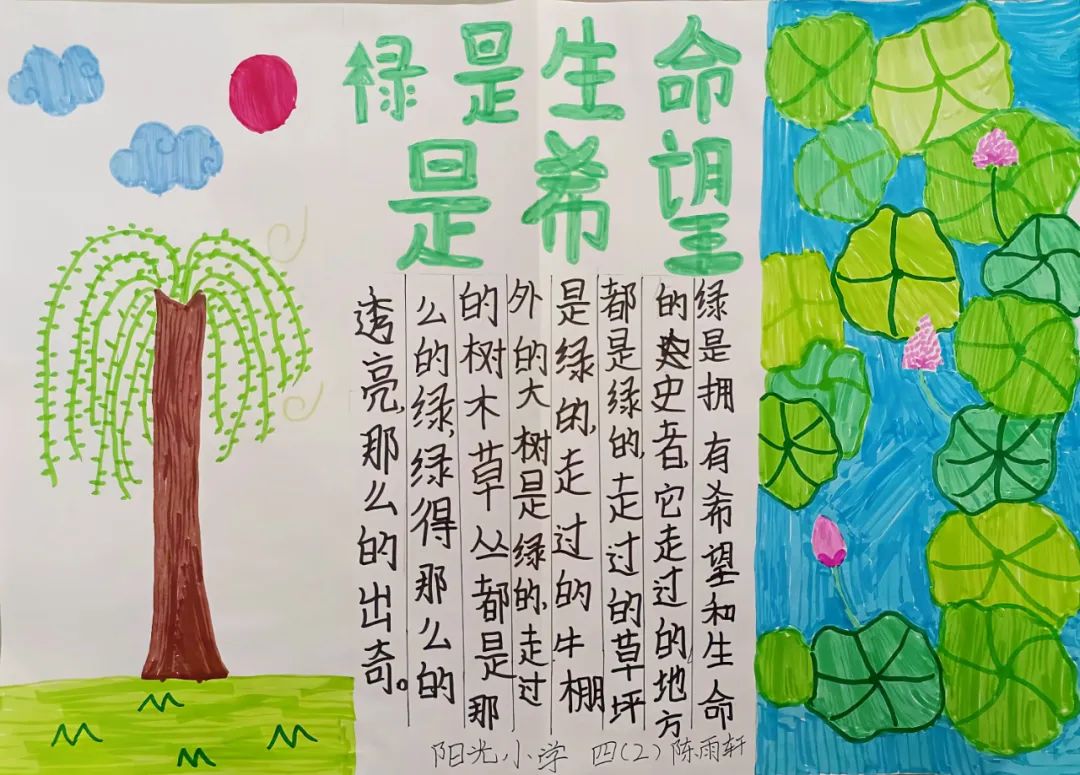 绿是生命
是希望
绿是拥有希望和生命
的史者,它走过的地方
都是绿的,走过的草坪
是绿的,走过的牛棚
外的大树是绿的,走过
的树木草丛都是那
么的绿,绿得那么的
透亮,那么的出奇。
阳光小学 四(2) 陈雨轩